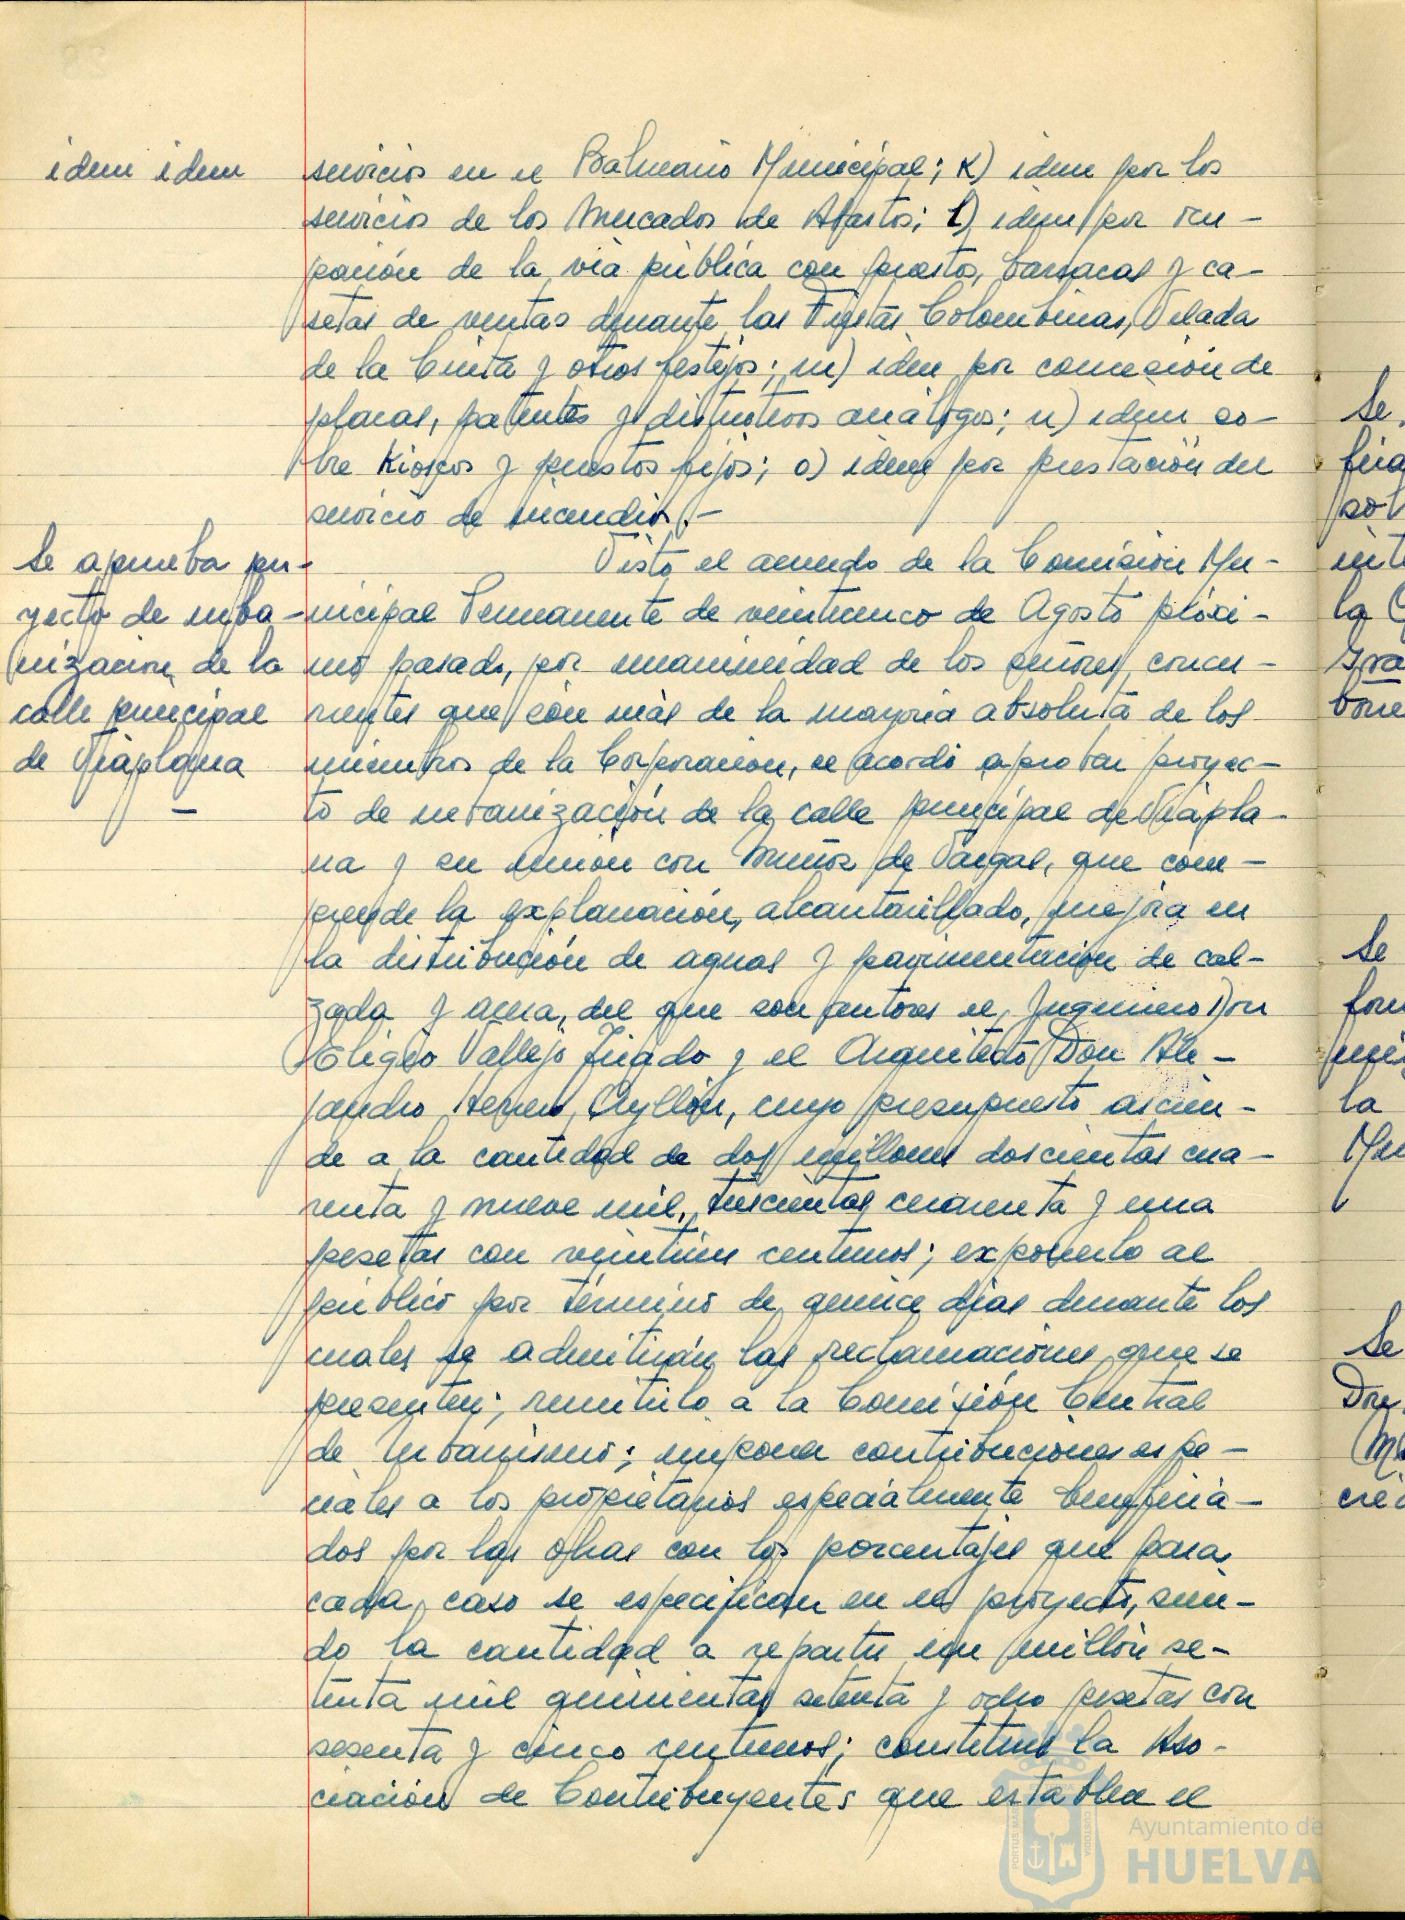 idem idem
servicios en el Balneario Municipal; K) idem por los
servicios de los Mercados de Abastos; l) idem por ocu-
pación de la vía pública con puestos, barracas y ca-
setas de ventas durante las Fiestas Colombinas, Velada
de la Cinta y otros festejos; m) idem por concesión de
placas, patentes y distintivos análogos; n) idem so-
bre Kioscos y puestos fijos; o) idem por prestación del
servicio de incendios.-
Se aprueba pro-
yecto de urba-
nización de la
calle principal
de Viaplana
-
Visto el acuerdo de la Comisión Mu-
nicipal Permanente de veinticinco de Agosto próxi-
mo pasado, por unanimidad de los señores concu-
rrentes que son más de la mayoría absoluta de los
miembros de la Corporación, se acordó aprobar proyec-
to de urbanización de la calle principal de Viapla-
na y su unión con Muñoz de Vargas, que com-
prende la explanación, alcantarillado, mejora en
la distribución de aguas y pavimentación de cal-
zada y acera, del que son autores el Ingeniero Don
Eligio Vallejo Tirado y el Arquitecto Don Ale-
jandro Herrero Ayllón, cuyo presupuesto ascien-
de a la cantidad de dos millones doscientas cua-
renta y nueve mil, trescientas cuarenta y una
pesetas con veintiún centimos; exponerlo al
público por término de quince dias durante los
cuales se admitirán las reclamaciones que se
presenten; remitirlo a la Comisión Central
de Urbanismo; imponer contribuciones espe-
ciales a los propietarios especialmente beneficia-
dos por las obras con los porcentajes que para
cada caso se especifican en el proyecto, sien-
do la cantidad a repartir un millón se-
tenta mil quinientas setenta y ocho pesetas con
sesenta y cinco centimos; constituir la Aso-
ciación de Contribuyentes que establece el
Se
sol
la
Se
la
Mu
Se
Don
Ayuntamiento de
HUELVA